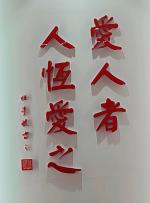 愛人者
人恆愛之